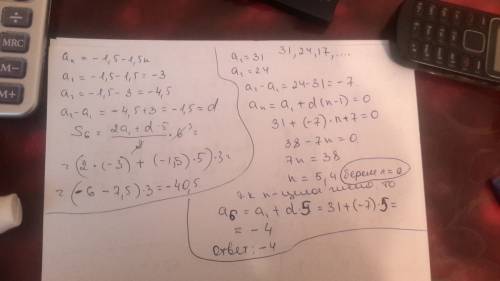 ÷
MRC
M−
M+
aₙ = −1,5 − 1,5n
a₁ = −1,5 − 1,5 = −3
a₂ = −1,5 − 3 = −4,5
a₂ − a₁ = −4,5 + 3 = −1,5 = d
S₆ = (2a₁ + d·5)/2 · 6³ =
= (2·(−3) + (−1,5)·5)·3 =
= (−6 − 7,5)·3 = −40,5
31, 24, 17, ....
a₁ = 31
a₂ = 24
a₂ − a₁ = 24 − 31 = −7
aₙ = a₁ + d(n−1) = 0
31 + (−7)·n + 7 = 0
38 − 7n = 0
7n = 38
n = 5,4 (берем n = 6
т.к n - целое число, то
a₆ = a₁ + d·5 = 31 + (−7)·5 =
= −4
Ответ: −4